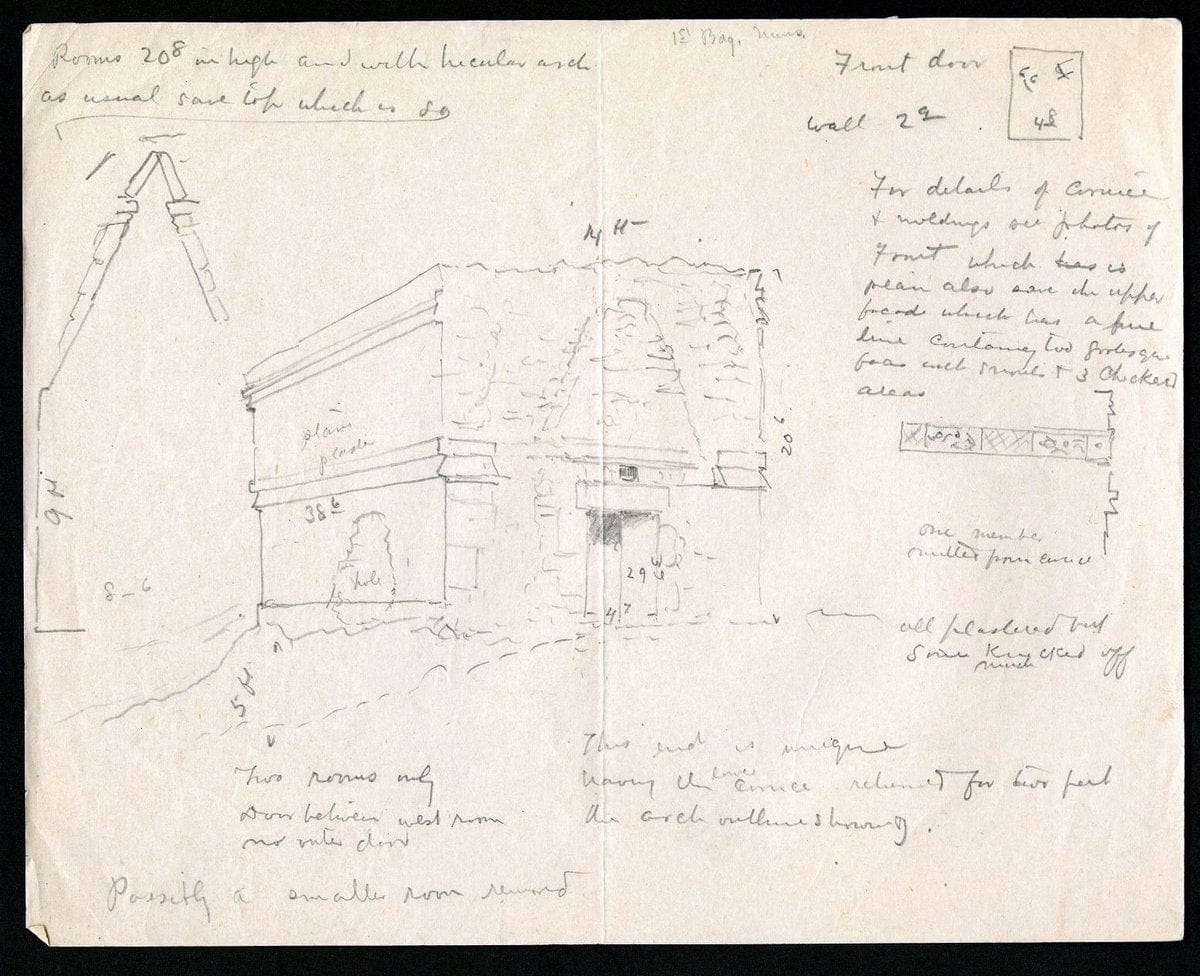 Rooms 20⁸ in high and with arch
as usual save top which is so
1st
Front door
wall 2
4 8
For details of cornice
& moldings see photos of
Front which is
plain also save the upper
facade which has a fine
line two grotesque
faces with & 3 checkerd
areas
14 ft
20 2
plain
plaster
38 6
hole
9 ft
8-6
29
4 7
5 ft
one member
omitted from cornice
all plastered but
knocked off
much
This end is unique
having the lower cornice returned for two feet
the arch outline showing.
Two rooms only
Door between west room
no outer door
Possibly a smaller room